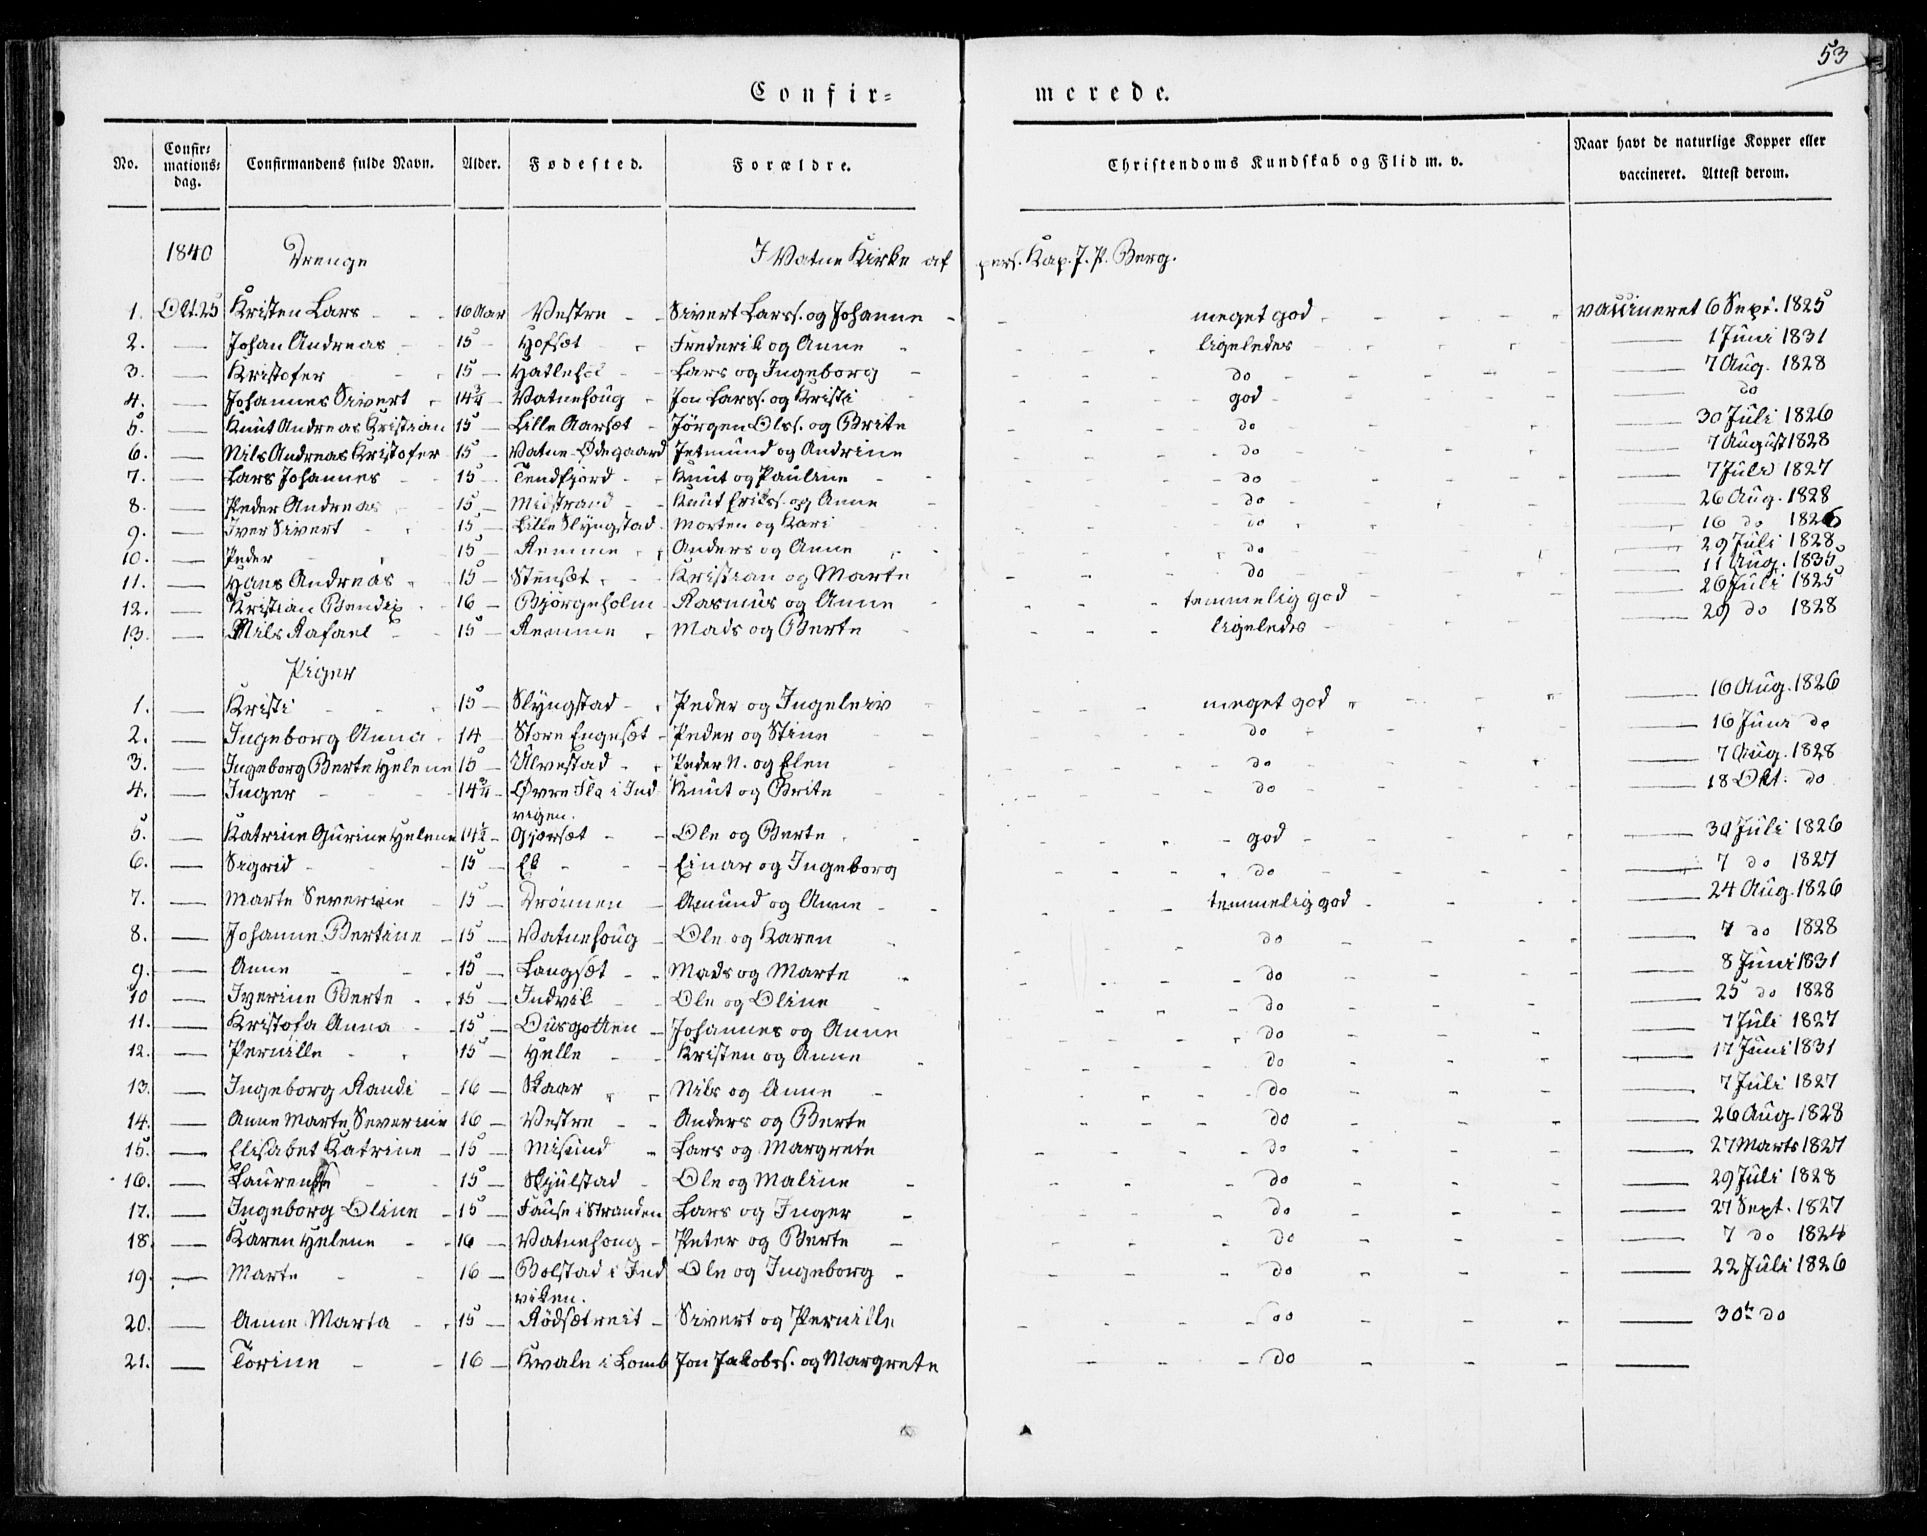 53
Confir= merede.
No. Confir=mations=dag. Confirmandens fulde Navn. Alder. Fødested. Forældre. Christendoms Kundskab og Flid m. v. Naar havt de naturlige Kopper eller vaccineret. Attest derom.
1840 Drenge I Vatne Kirke af pers. Kap. J. P. Berg.
1. Okt. 25 Kristen Lars - - 16 Aar Vestre - - Sivert Larss. og Johanne - meget god - vaccineret 6 Sept. 1825
2. — Johan Andreas - 15 - Hofsæt - Frederik og Anne - ligeledes - — 1 Juni 1831
3. — Kristofer - 15 — Hatlehol - Lars og Ingeborg - do - — 7 Aug. 1828
4. — Johannes Sivert - 14¾ — Vatnehoug - Jon Larss. og Kristi - god - — do
5. — Knut Andreas Kristian 15 — Lille Aarsæt - Jörgen Olss. og Brite - do - — 30 Juli 1826
6. — Nils Andreas Kristofer 15 - Vatne-Ødegaard Jetmund og Andrine - do - — 7 August 1828
7. — Lars Johannes - 15 - Tendfjord - Knut og Pauline - do - — 7 Juli 1827
8. — Peder Andreas - 15 — Midstrand - Knut Erikss. og Anne - do - — 26 Aug. 1828
9. — Iver Sivert - 15 — Lille Slyngstad - Morten og Kari - do - — 16 do 1826
10. — Peder - 15 — Remme - Anders og Anne - do - — 29 Juli 1828
11. — Hans Andreas - 15 — Stensæt - Kristian og Marte - do - — 11 Aug. 1835
12. — Kristian Bendix - 16 - Bjørgeholm - Rasmus og Anne - temmelig god - — 26 Juli 1825
13. — Nils Rafael - 15 — Remme - Mads og Berte - ligeledes - — 29 do 1828
Piger
1. — Kristi - 15 — Slyngstad - Peder og Ingeleiv - meget god - — 16 Aug. 1826
2. — Ingeborg Anna - 14 - Store Engesæt - Peder og Stine - do - — 16 Juni do
3. — Ingeborg Berte Helene 15 - Ulvestad - Peder N. og Elen - do - — 7 Aug. 1828
4. — Inger - 14¾ - Øvre Flø i Ind Knut og Brite - do - — 18 Okt. do
vigen.
5. — Katrine Gurine Helene 14½ - Gjærsæt - Ole og Berte - god - — 30 Juli 1826
6. — Sigrid - 15 - Ek - Einar og Ingeborg - do - — 7 do 1827
7. — Marte Severine - 15 — Drönnen - Amund og Anne - temmelig god - — 24 Aug. 1826
8. — Johanne Bertine - 15 — Vatnehoug - Ole og Karen - do - — 7 do 1828
9. — Anne - 15 — Langsæt - Mads og Marte - do - — 8 Juni 1831
10 — Iverine Berte - 15 — Indvik - Ole og Oline - do - — 25 do 1828
11. — Kristofa Anna - 15 — - Johannes og Anne - do - — 7 Juli 1827
12. — Pernille - 15 — Helle - Kristen og Anne - do - — 17 Juni 1831
13. — Ingeborg Randi - 16 — Skaar - Nils og Anne - do - — 7 Juli 1827
14. — Anne Marte Severine 16 — Vestre - Anders og Berte - do - — 26 Aug. 1828
15. — Elisabet Katrine - 15 — Misund - Lars og Margrete - do - — 27 Marts 1827
16. — - 15 — Skjulstad - Ole og Maline - do - — 29 Juli 1828
17. — Ingeborg Oline - 15 — Fause i Stranden Lars og Inger - do - — 27 Sept. 1827
18. — Karen Helene - 16 — Vatnehoug - Peter og Berte - do - — 7 do 1824
19. — Marte - 16 — Bolstad i Ind Ole og Ingeborg - do - — 22 Juli 1826
viken.
20. — Anne Marta - 15 — Rödsætreit - Sivert og Pernille - do - — 30te do
21. — Torine - 16 — Kvale i Lomb Jon Jakobss. og Margrete - do - —